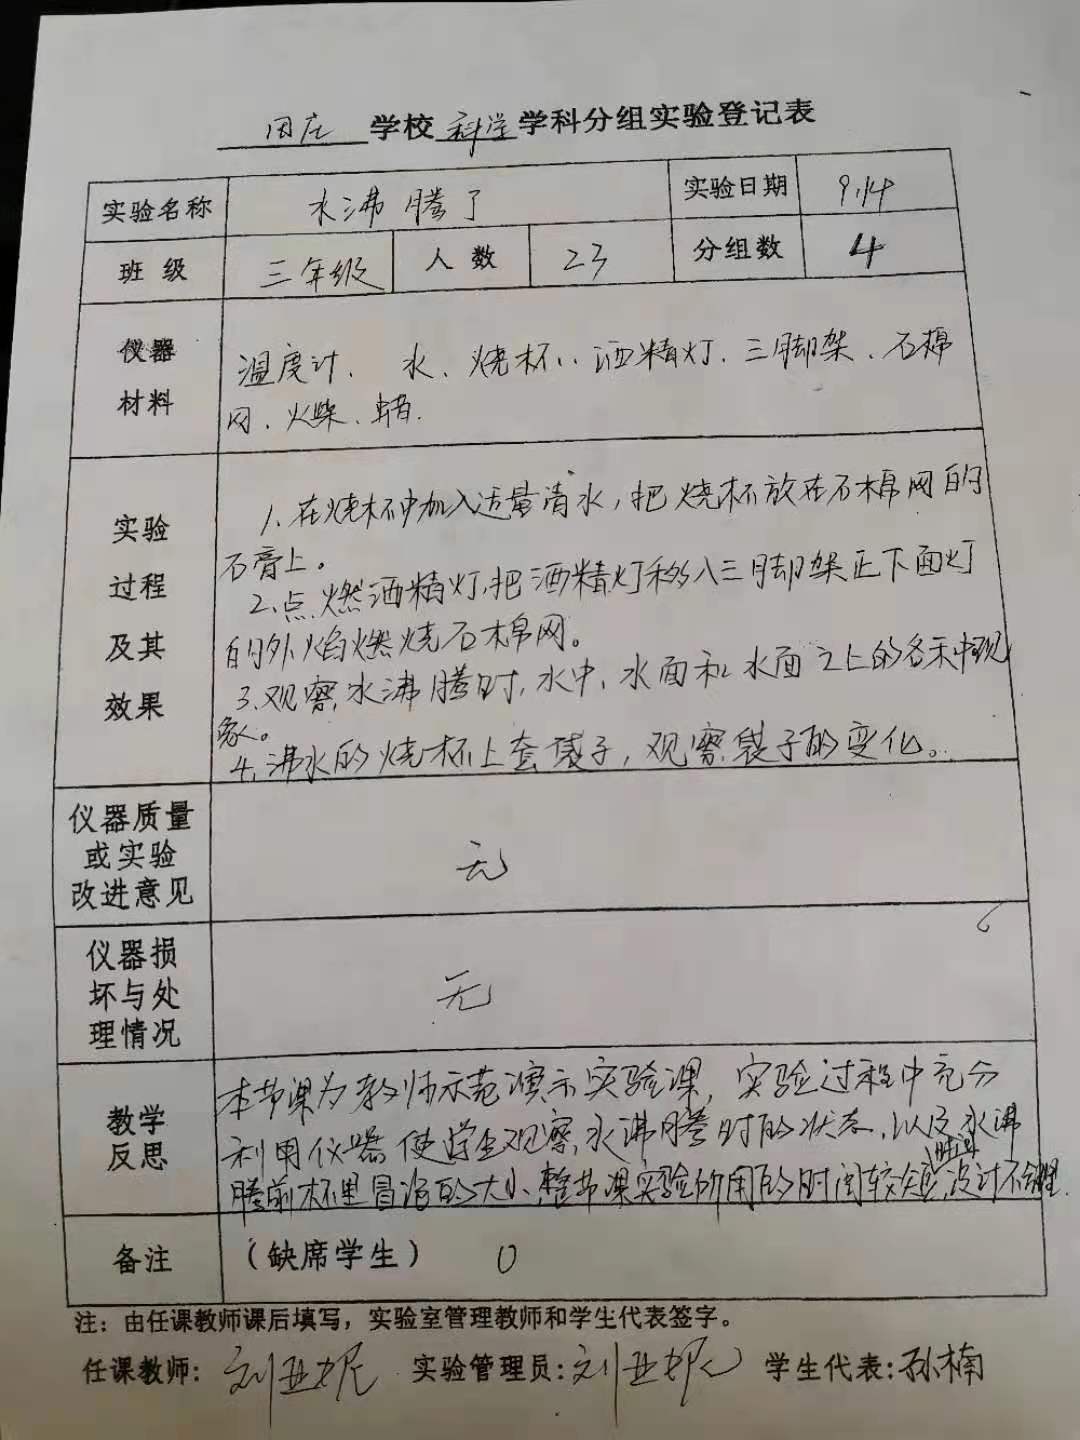 田庄学校科学学科分组实验登记表
实验名称 水沸腾了 实验日期 9.14
班级 三年级 人数 23 分组数 4
仪器
材料
温度计、水、烧杯、酒精灯、三脚架、石棉
网、火柴、蜡.
实验
过程
及其
效果
1.在烧杯中加入适量清水,把烧杯放在石棉网的
石膏上。
2.点燃酒精灯,把酒精灯移入三脚架正下面灯
的外焰燃烧石棉网。
3.观察水沸腾时,水中、水面和水面之上的各种现
象。
4.沸水的烧杯上套袋子,观察袋子的变化。
仪器质量
或实验
改进意见
无
仪器损
坏与处
理情况
无
教学
反思
本节课为教师示范演示实验课,实验过程中充分
利用仪器使学生观察水沸腾时的状态,以及水沸
腾前杯里冒泡的大小,整节课实验所用的时间较短,设计不合理.
备注 (缺席学生) 0
注:由任课教师课后填写,实验室管理教师和学生代表签字。
任课教师:刘亚妮 实验管理员:刘亚妮 学生代表:孙楠